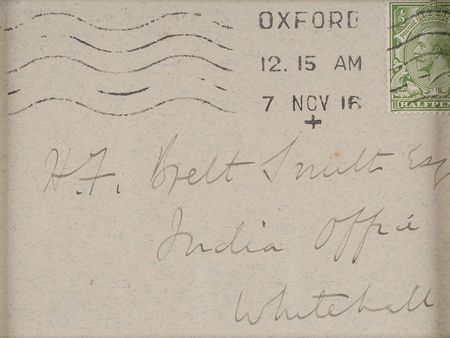 OXFORD
12.15 AM
7 NOV 16
½
HALFPENNY
H. F. Brett Smith Esq
India Office
Whitehall